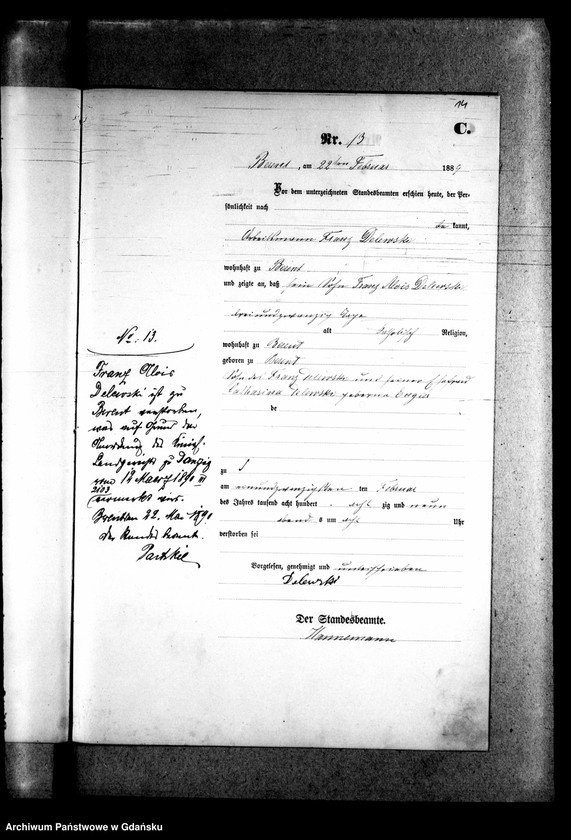 14
C.
Nr. 13
Berent, am 22ten Februar 1889
Vor dem unterzeichneten Standesbeamten erschien heute, der Per-
sönlichkeit nach
kannt,
Arbeitsmann Franz Delewski
wohnhaft zu Berent
und zeigte an, daß sein Sohn Franz Alois Delewski
dreiundzwanzig Tage
alt katholischer Religion,
wohnhaft zu Berent
geboren zu Berent
Sohn des Franz Delewski und seiner Ehefrau
Catharina Delewski geborene
de
zu
am einundzwanzigsten ten Februar
des Jahres tausend acht hundert acht zig und neun
abends um acht Uhr
verstorben sei
Vorgelesen, genehmigt und unterschrieben
Delewski
Der Standesbeamte.
Hannemann
No. 13.
Franz Alois
Delewski ist zu
Berent verstorben,
was auf Grund der
Anordnung des Königl.
Landgerichts zu Danzig
vom 12 März 1890
vermerkt wird.
22. Mai 1890
Der Standesbeamte.
Archiwum Państwowe w Gdańsku